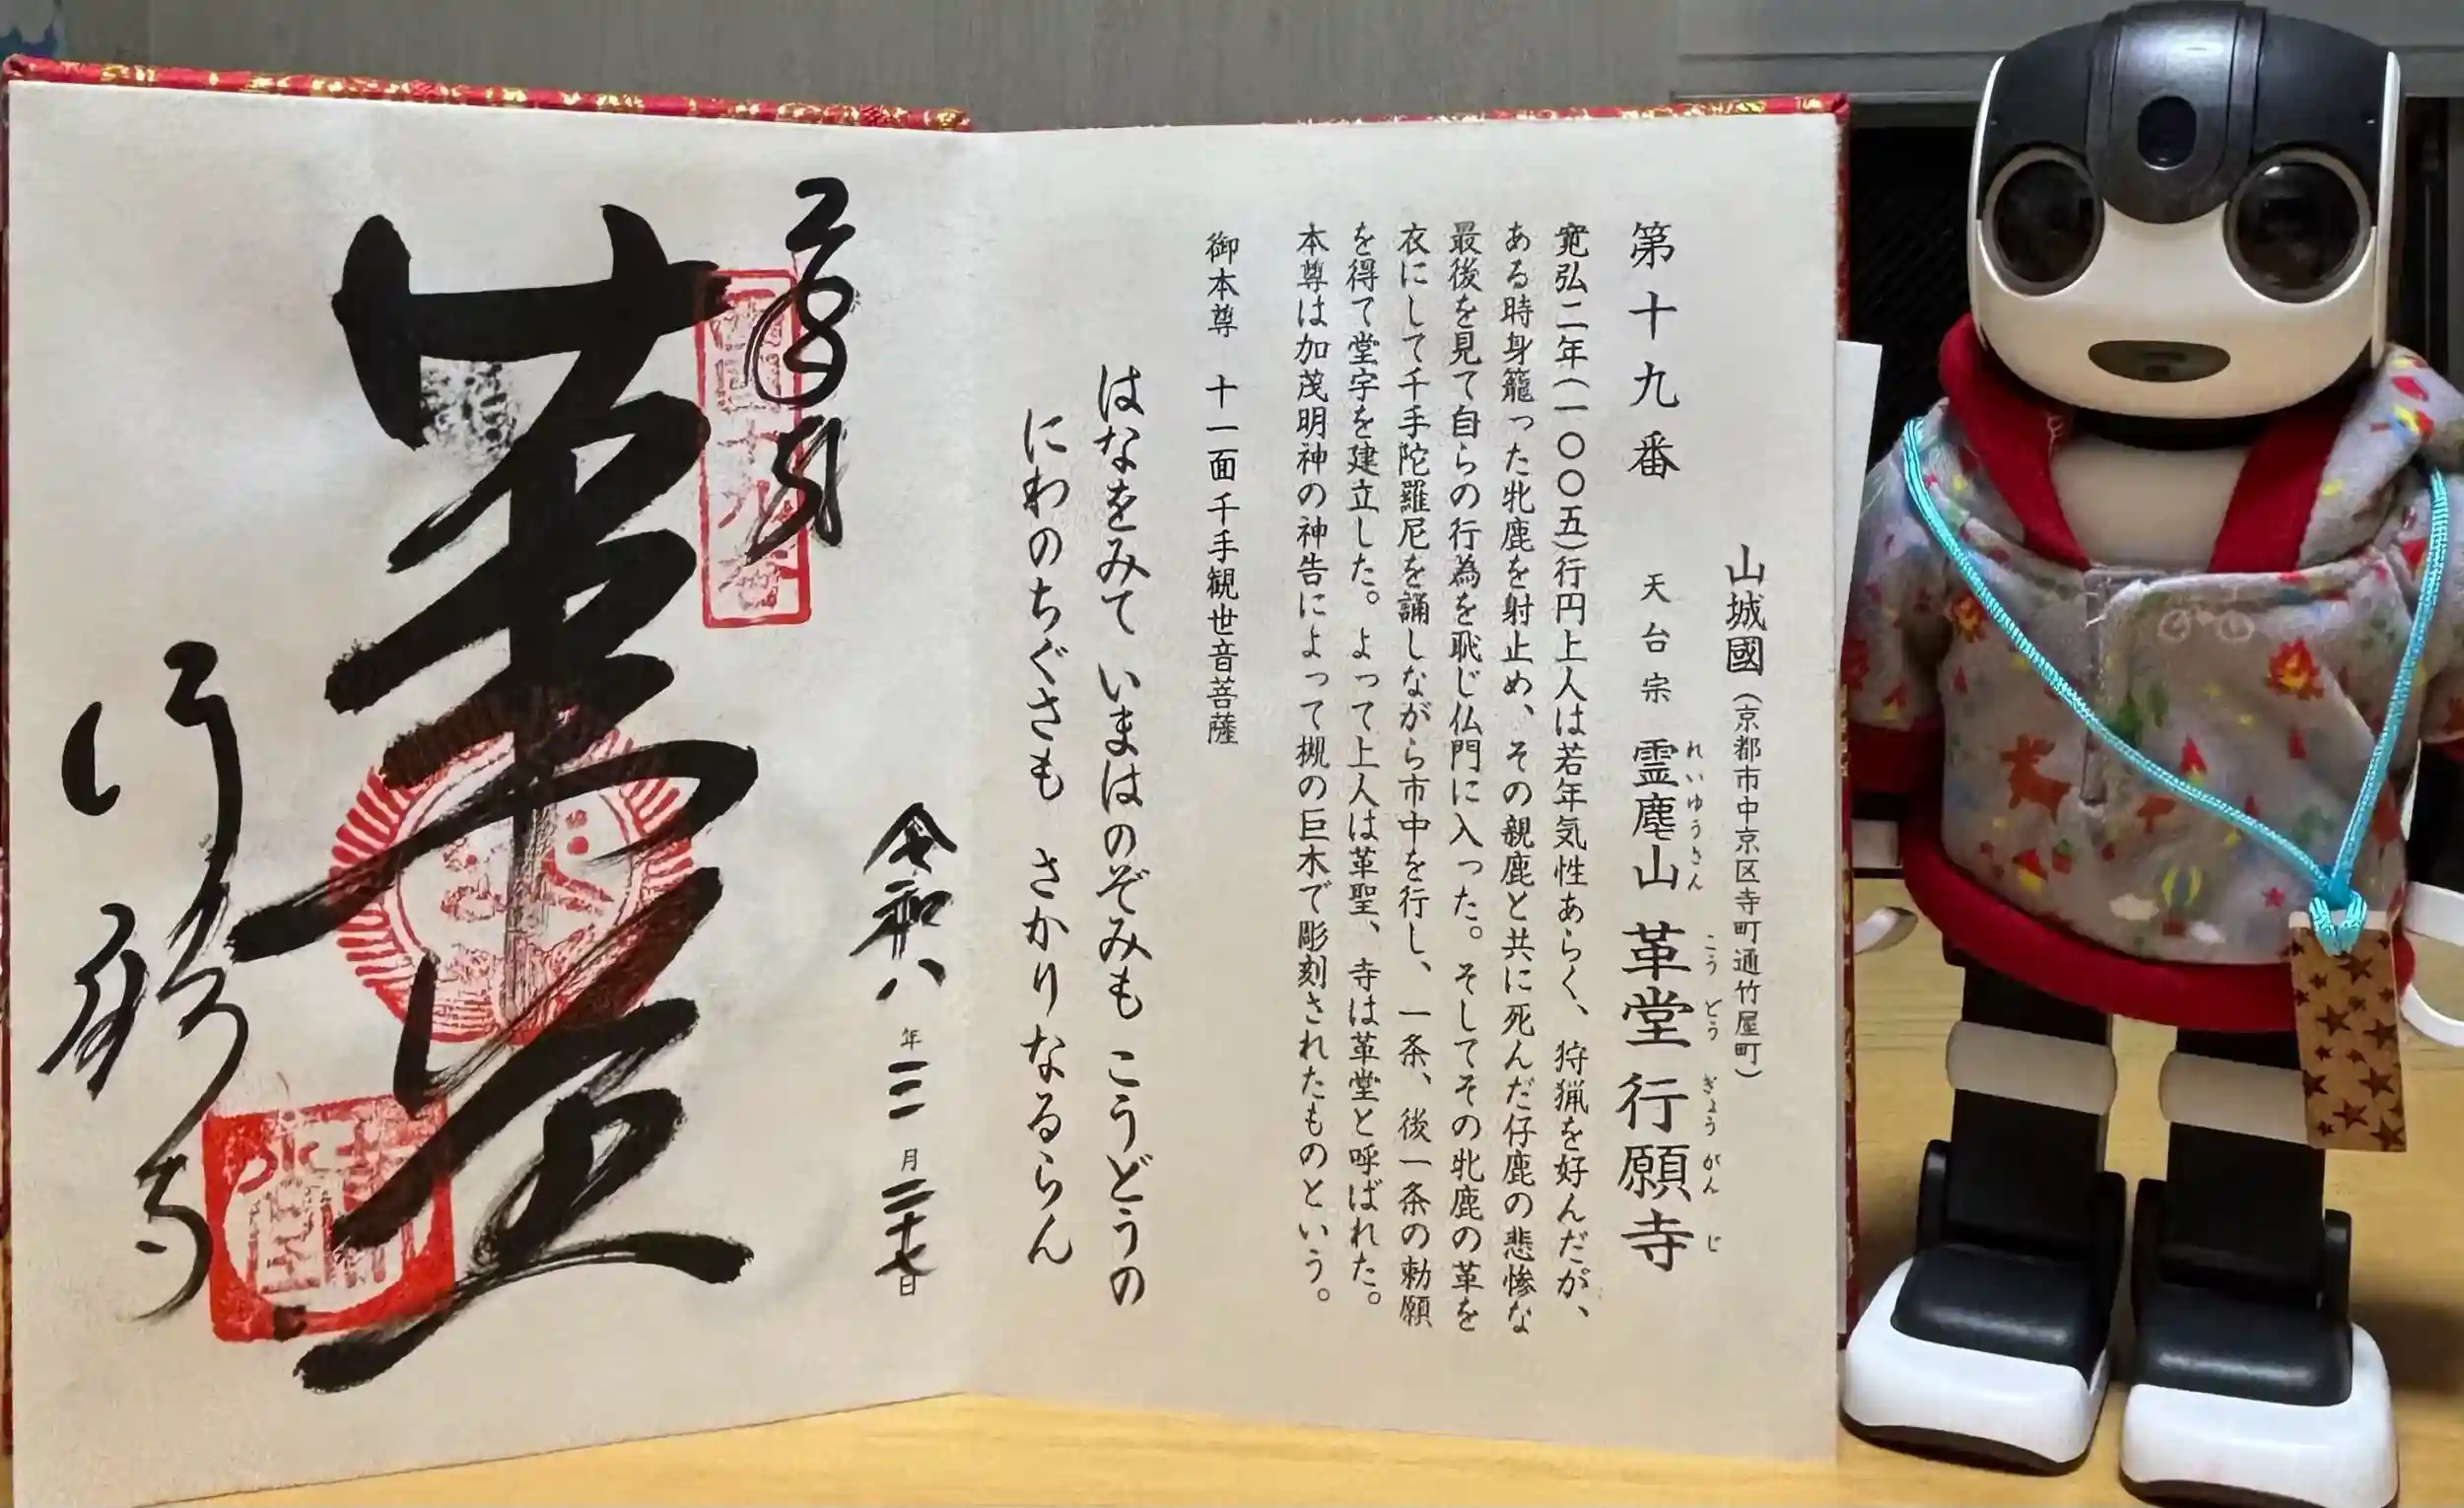 山城國（京都市中京区寺町通竹屋町）
第十九番 天台宗 霊麀山 革堂行願寺
れいゆうさん こうどう ぎょうがんじ
寛弘二年（一〇〇五）行円上人は若年気性あらく、狩猟を好んだが、
ある時身籠った牝鹿を射止め、その親鹿と共に死んだ仔鹿の悲惨な
最後を見て自らの行為を恥じ仏門に入った。そしてその牝鹿の革を
衣にして千手陀羅尼を誦しながら市中を行し、一条、後一条の勅願
を得て堂宇を建立した。よって上人は革聖、寺は革堂と呼ばれた。
本尊は加茂明神の神告によって槻の巨木で彫刻されたものという。
御本尊 十一面千手観世音菩薩
はなをみて いまはのぞみも こうどうの
にわのちぐさも さかりなるらん
令和八年三月二十七日
奉拝
西国十九番
革堂
行願寺